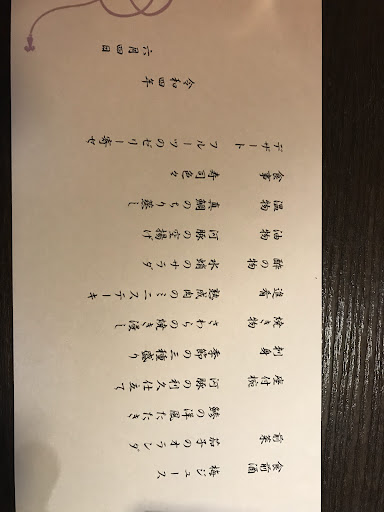 食前酒 梅ジュース
前菜 茄子のオランダ
鯵の洋風たたき
座付椀 河豚の利久仕立て
刺身 季節の三種盛り
焼き物 さわらの焼き浸し
進肴 熟成肉のミニステーキ
酢の物 水蛸のサラダ
油物 河豚の空揚げ
温物 真鯛のちり蒸し
食事 寿司色々
デザート フルーツのゼリー寄せ
令和四年
六月四日